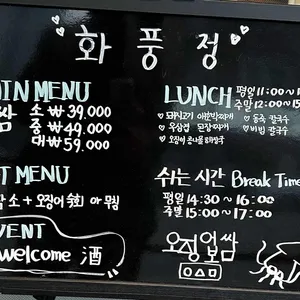 화풍정
MAIN MENU
쌈 소 ₩ 39.000
중 ₩ 49.000
대 ₩ 59.000
MENU
소 + 오징어
EVENT
welcome 酒
LUNCH 평일 11:00~
주말 12:00~
돼지고기 김치찌개 동죽 칼국수
우삼겹 된장찌개 비빔 칼국수
오징어 콩나물
쉬는 시간 Break Time
평일 14:30 ~ 16:00
주말 15:00 ~ 17:00
오징어보쌈